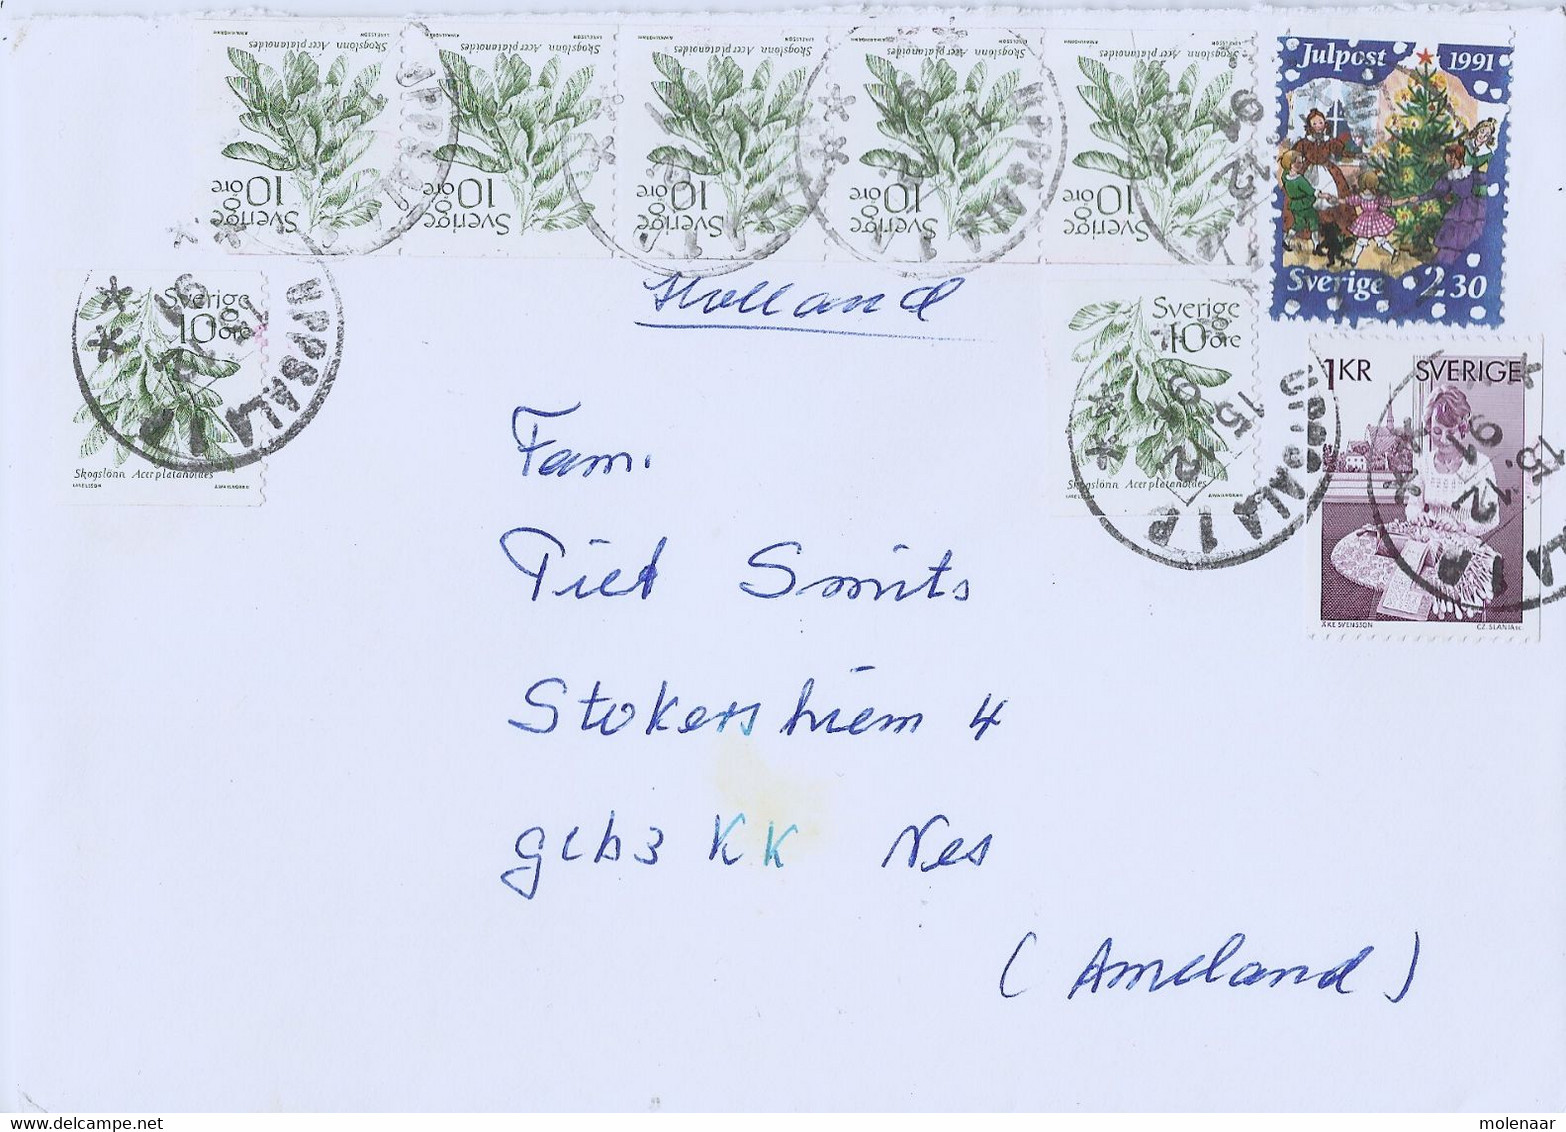 Skogslönn Acer platanoides
Sverige
10 öre
Skogslönn Acer platanoides
Sverige
10 öre
Skogslönn Acer platanoides
Sverige
10 öre
Skogslönn Acer platanoides
Sverige
10 öre
Skogslönn Acer platanoides
Sverige
10 öre
Julpost 1991
Sverige 2.30
UPPSALA 1
Sverige
10 öre
Skogslönn Acer platanoides
Holland
Sverige
10 öre
Skogslönn Acer platanoides
UPPSALA 1
15.12.91
1 KR SVERIGE
ÅKE SVENSSON CZ. SLANIA sc.
15.12
91
Fam.
Piet Smits
Stokershiem 4
9163 KK Nes
(Ameland)
www.delcampe.net
molenaar